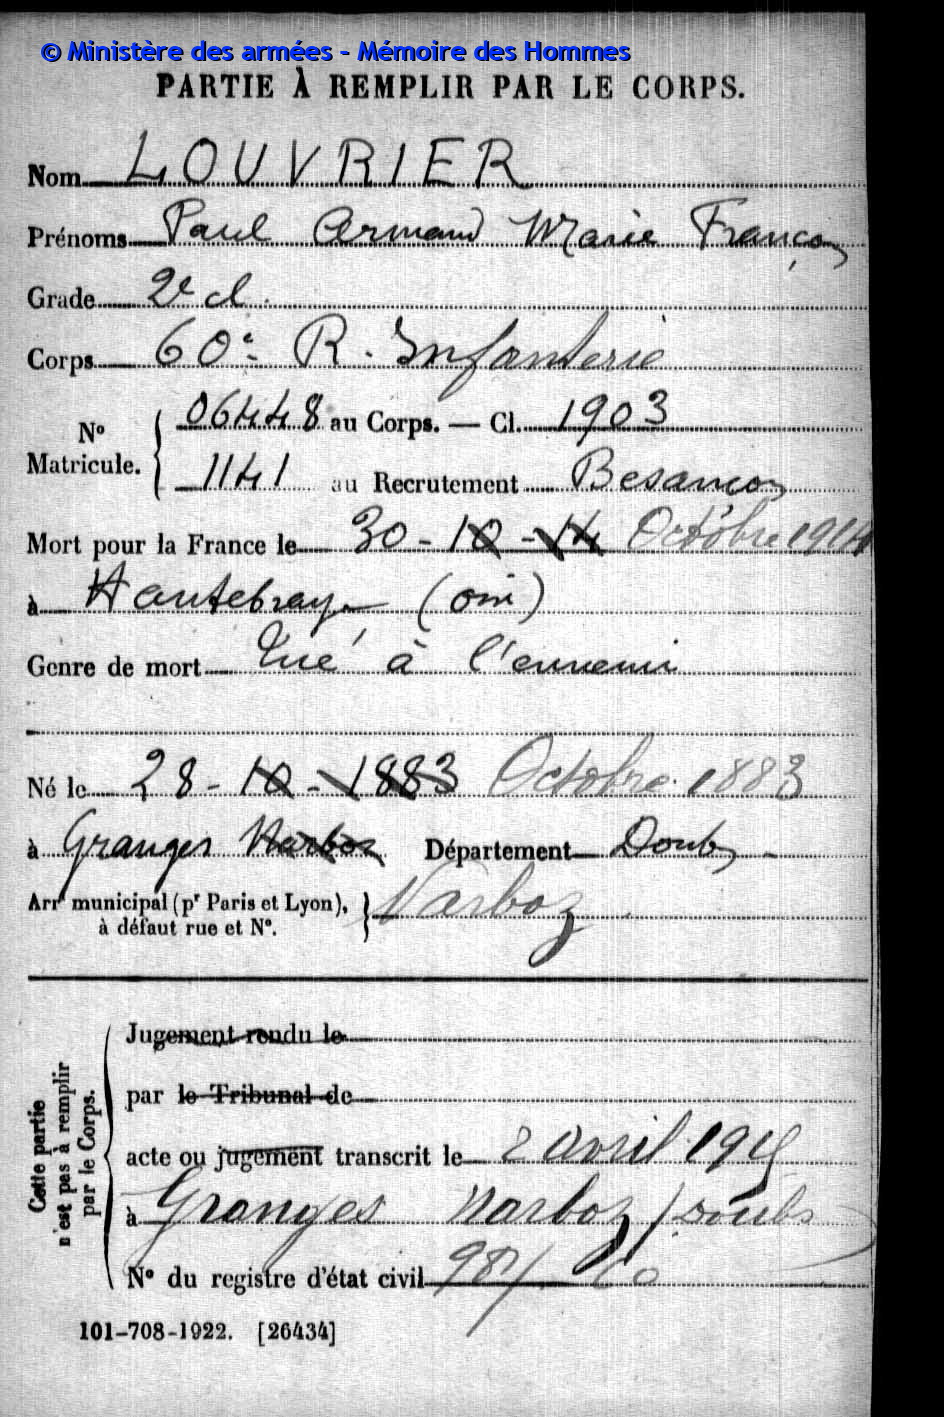 © Ministère des armées - Mémoire des Hommes
PARTIE À REMPLIR PAR LE CORPS.
Nom LOUVRIER
Prénoms Paul Armand Marie François
Grade 2e cl.
Corps 60e R. Infanterie
N° Matricule. 06448 au Corps. — Cl. 1903
1141 au Recrutement Besançon
Mort pour la France le 30 - 10 - 14 Octobre 1914
à Hautebraye (oise)
Genre de mort Tué à l'ennemi
Né le 28 - 10 - 1883 Octobre 1883
à Granges Narboz Département Doubs
Arrt municipal (pr Paris et Lyon), Narboz
à défaut rue et N°.
Cette partie
n'est pas à remplir
par le Corps.
Jugement rendu le
par le Tribunal de
acte ou jugement transcrit le 2 avril 1915
à Granges Narboz / Doubs
N° du registre d'état civil
101-708-1922. [26434]